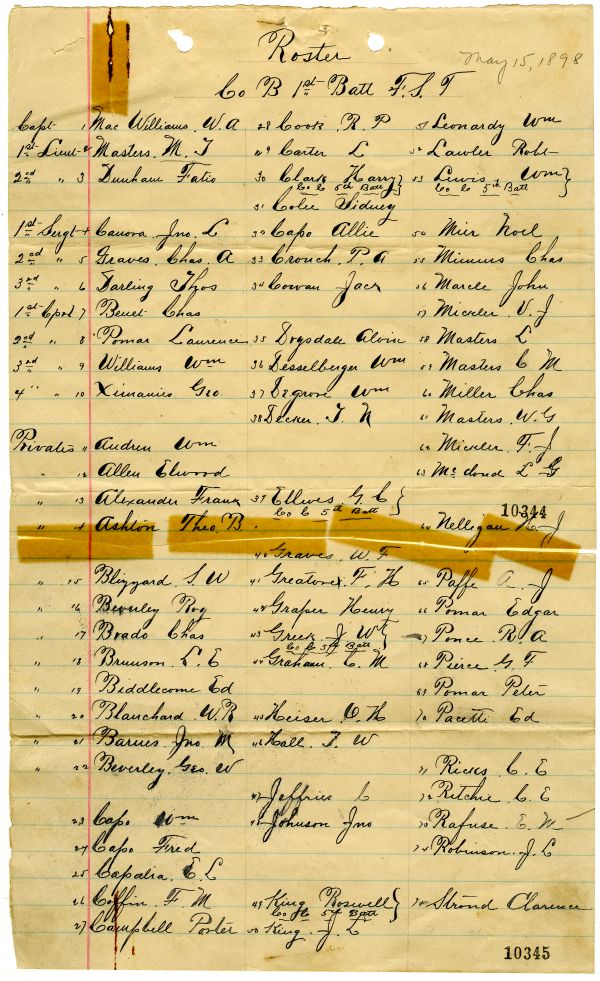 Roster
May 15, 1898
Co B 1st Batt F.S.T
Capt 1 Mac Williams, W. A
1st Lieut 2 Masters M. J
2nd " 3 Dunham Fatio
1st Sergt 4 Canova, Jno. L
2nd " 5 Graves, Chas. A
3rd " 6 Darling Thos
1st Corpl 7 Benet Chas
2nd " 8 Pomar Laurence
3rd " 9 Williams Wm
4" " 10 Ximanies Geo
Privates 11 Andreu Wm
" 12 Allen Elwood
" 13 Alexander Frank
" 14 Ashton Theo. B.
" 15 Blizzard S. W
" 16 Beverley Roy
" 17 Brado Chas
" 18 Brunson L. E
" 19 Biddlecome Ed
" 20 Blanchard W. R
" 21 Barnes, Jno. M
" 22 Beverley, Geo. W
23 Capo Wm
24 Capo Fred
25 Capalia, E. L
26 Coffin, F. M
27 Campbell Porter
28 Cook, R. P
29 Carter L
30 Clark, Harry
Co C 5th Batt
31 Colie Sidney
32 Capo Allie
33 Crouch, P. A
34 Cowan Jack
35 Dogsdale Alvin
36 Desselberger Wm
37 Degrove Wm
38 Decker, J. N
39 Ellives G. C
Co C 5th Batt
40 Graves, W. F
41 Greatorex, F. H
42 Graper Henry
43 Greek J. W
Co C 5th Batt
44 Graham, C. M
45 Keiser O. H
46 Hall, T. W
47 Jeffries C
48 Johnson Jno
49 King Boswell
Co 5th Batt
50 King, J. L
51 Leonardy Wm
52 Lawler Robt
53 Lewis, Wm
Co C 5th Batt
54 Mier Noel
55 Mimms Chas
56 Marcle John
57 Mickler V. J
58 Masters L
59 Masters C M
60 Miller Chas
61 Masters W. G
62 Mickler F. J
63 McCloud L G
10344
64 Nelligan H. J
65 Paffe A. J
66 Pomar Edgar
67 Ponce R. A
68 Pierce G. F
69 Pomar Peter
70 Pacetti Ed
71 Ricks, C. E
72 Ritchie C. E
73 Rafuse E. W
74 Robinson J. L
75 Strond Clarence
10345